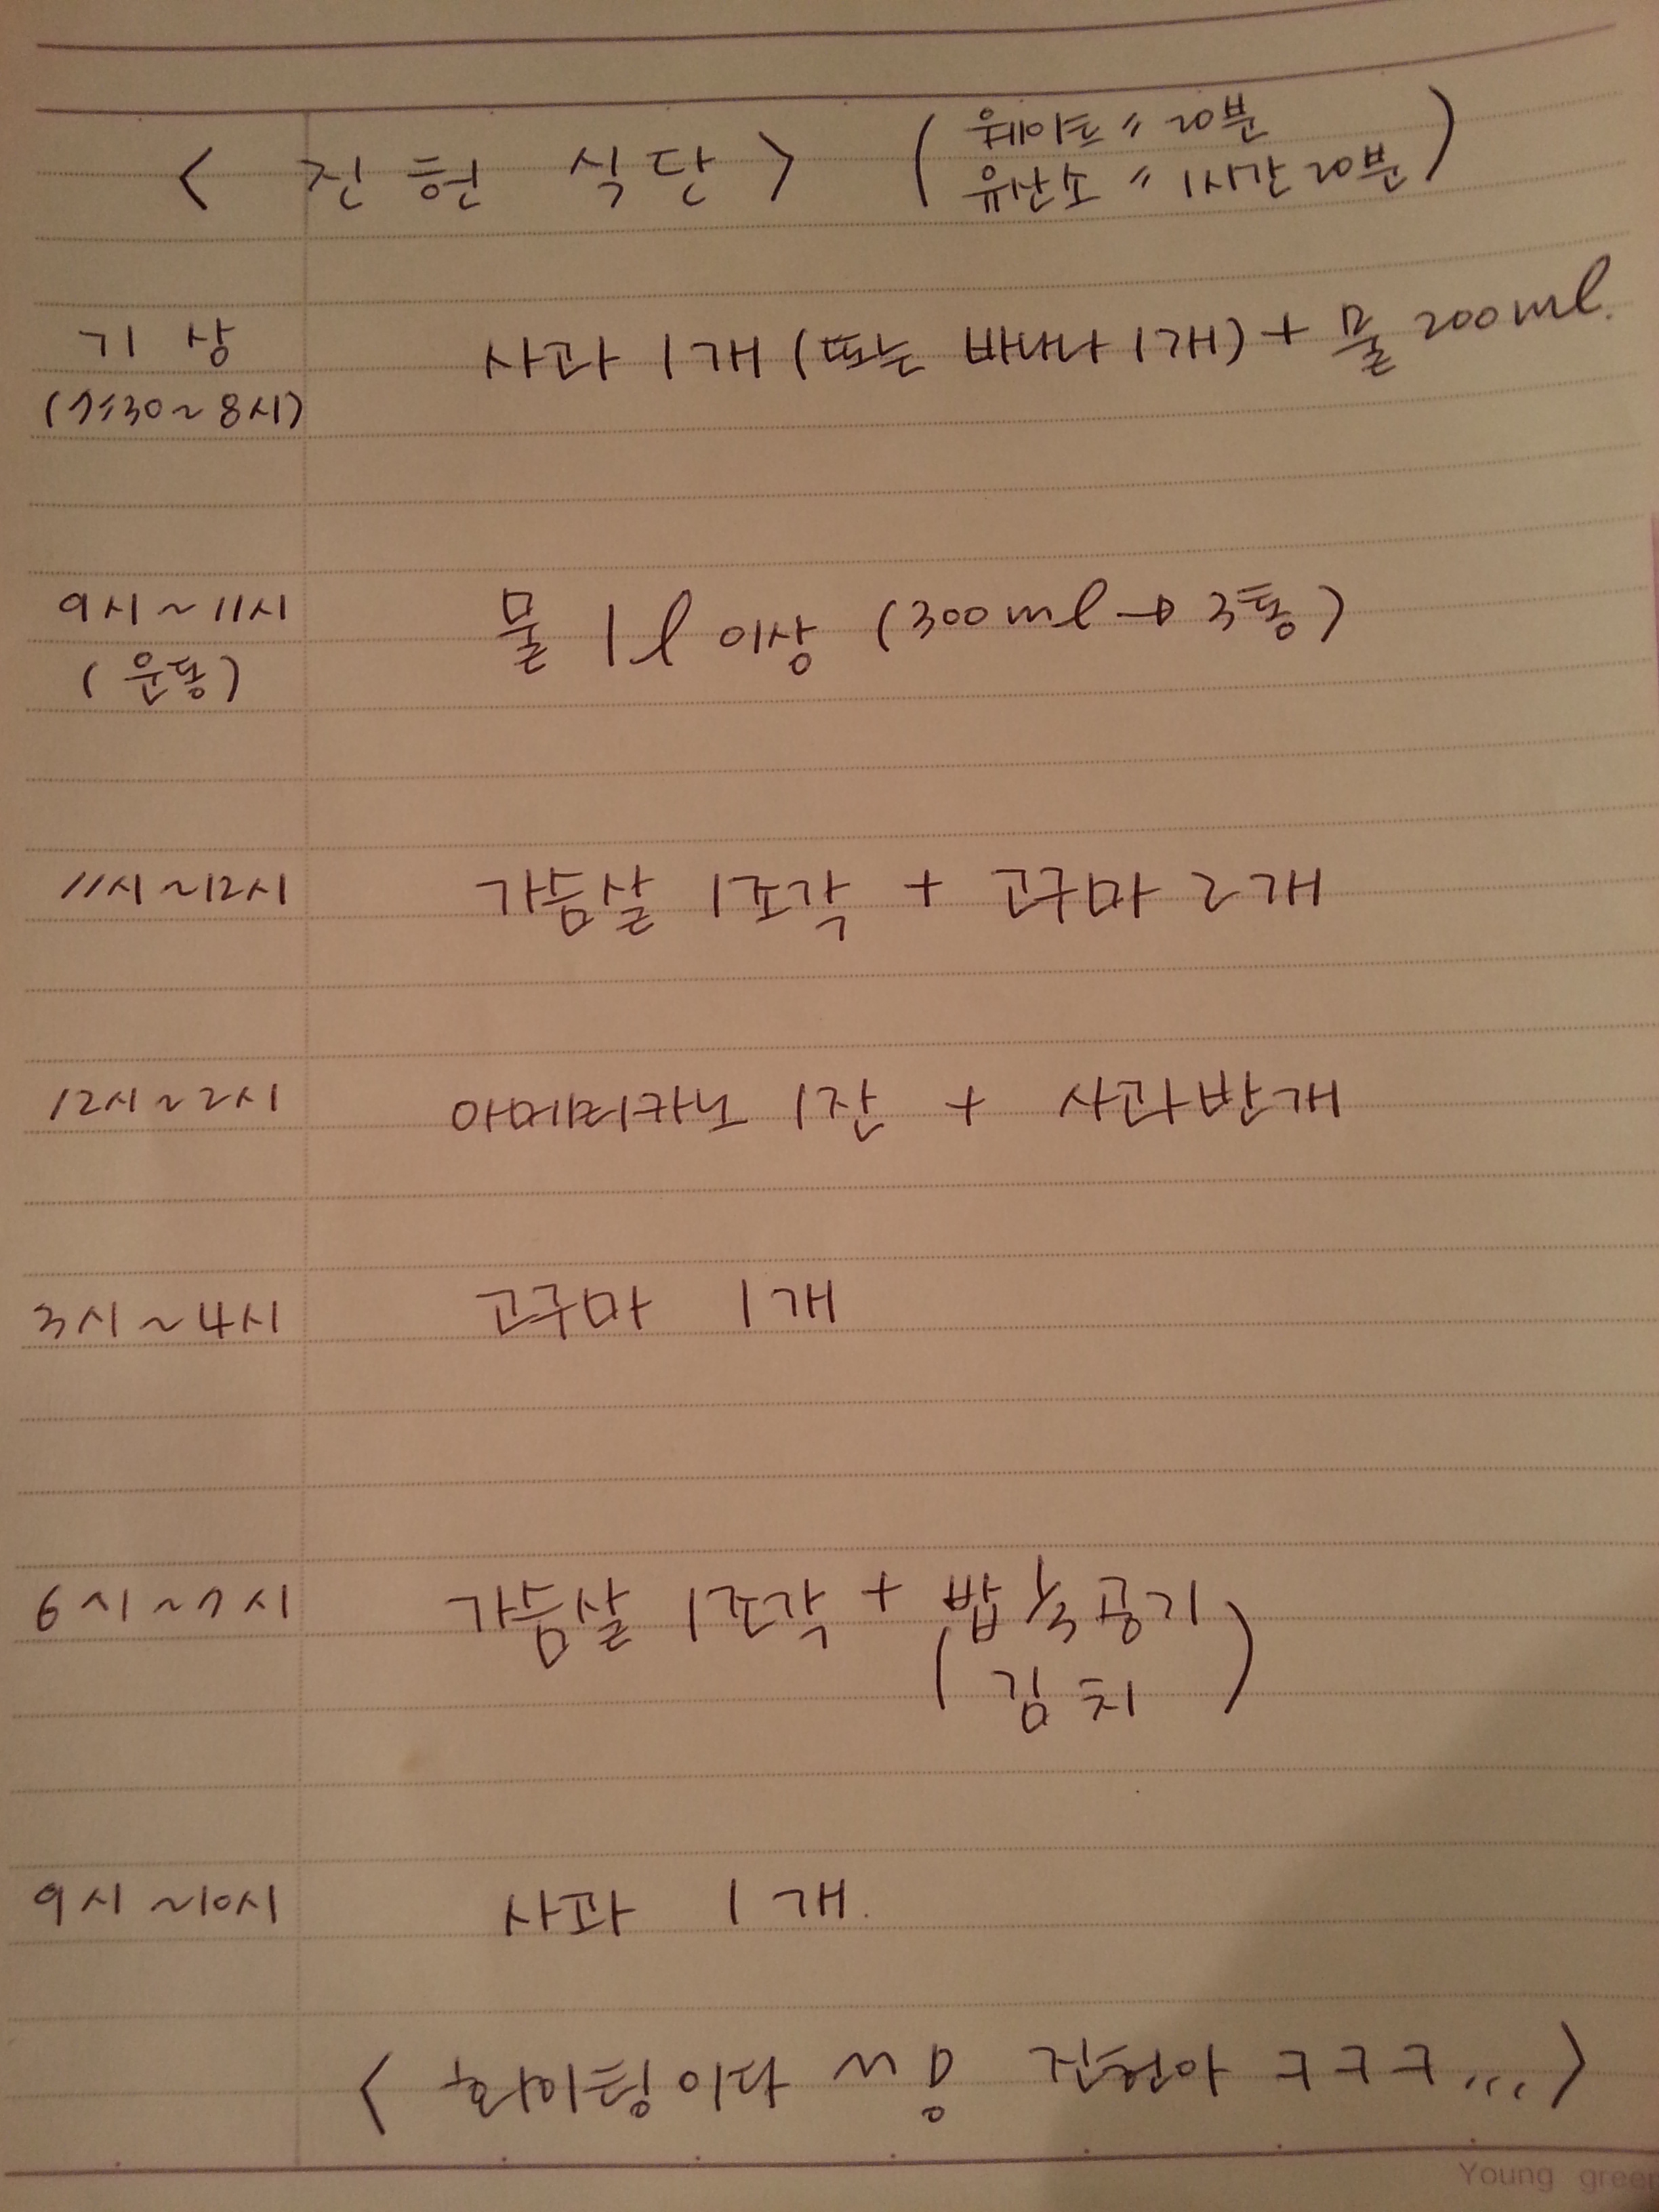 < 진현 식단 > (웨이트 = 20분
유산소 = 1시간 20분)
기상 사과 1개 (또는 바나나 1개) + 물 200ml.
(7:30~8시)
9시~11시 물 1l 이상 (300ml → 3통)
(운동)
11시~12시 가슴살 1조각 + 고구마 2개
12시~2시 아메리카노 1잔 + 사과반개
3시~4시 고구마 1개
6시~7시 가슴살 1조각 + 밥 공기
(김치)
9시~10시 사과 1개.
< 화이팅이다 ~ 진현아 ㅋㅋㅋ... >
Young green